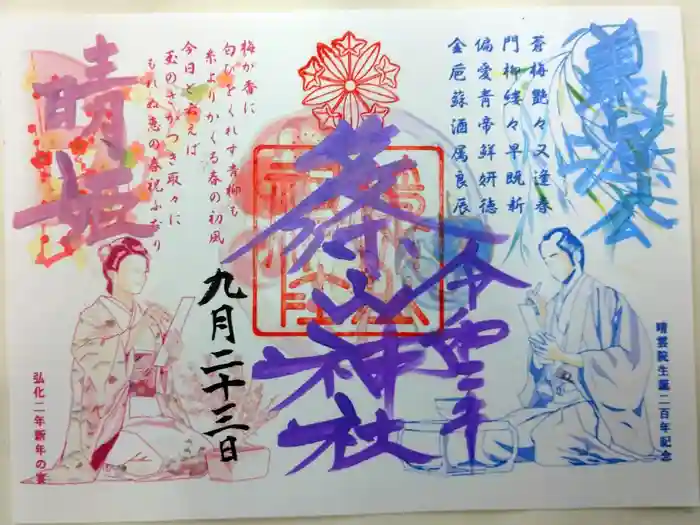 義源公
蒼梅艶々又逢春
門柳縷々早既新
偏愛青帝鮮妍徳
金巵蘇酒属良辰
晴雲院生誕二百年記念
令和二年
篠山神社
九月二十三日
梅が香に
匂ひをくれす青柳も
糸よりかくる春の初風
今日と云えば
玉のさかつき取々に
もれぬ恵の春祝ふなり
晴姫
弘化二年新年の宴